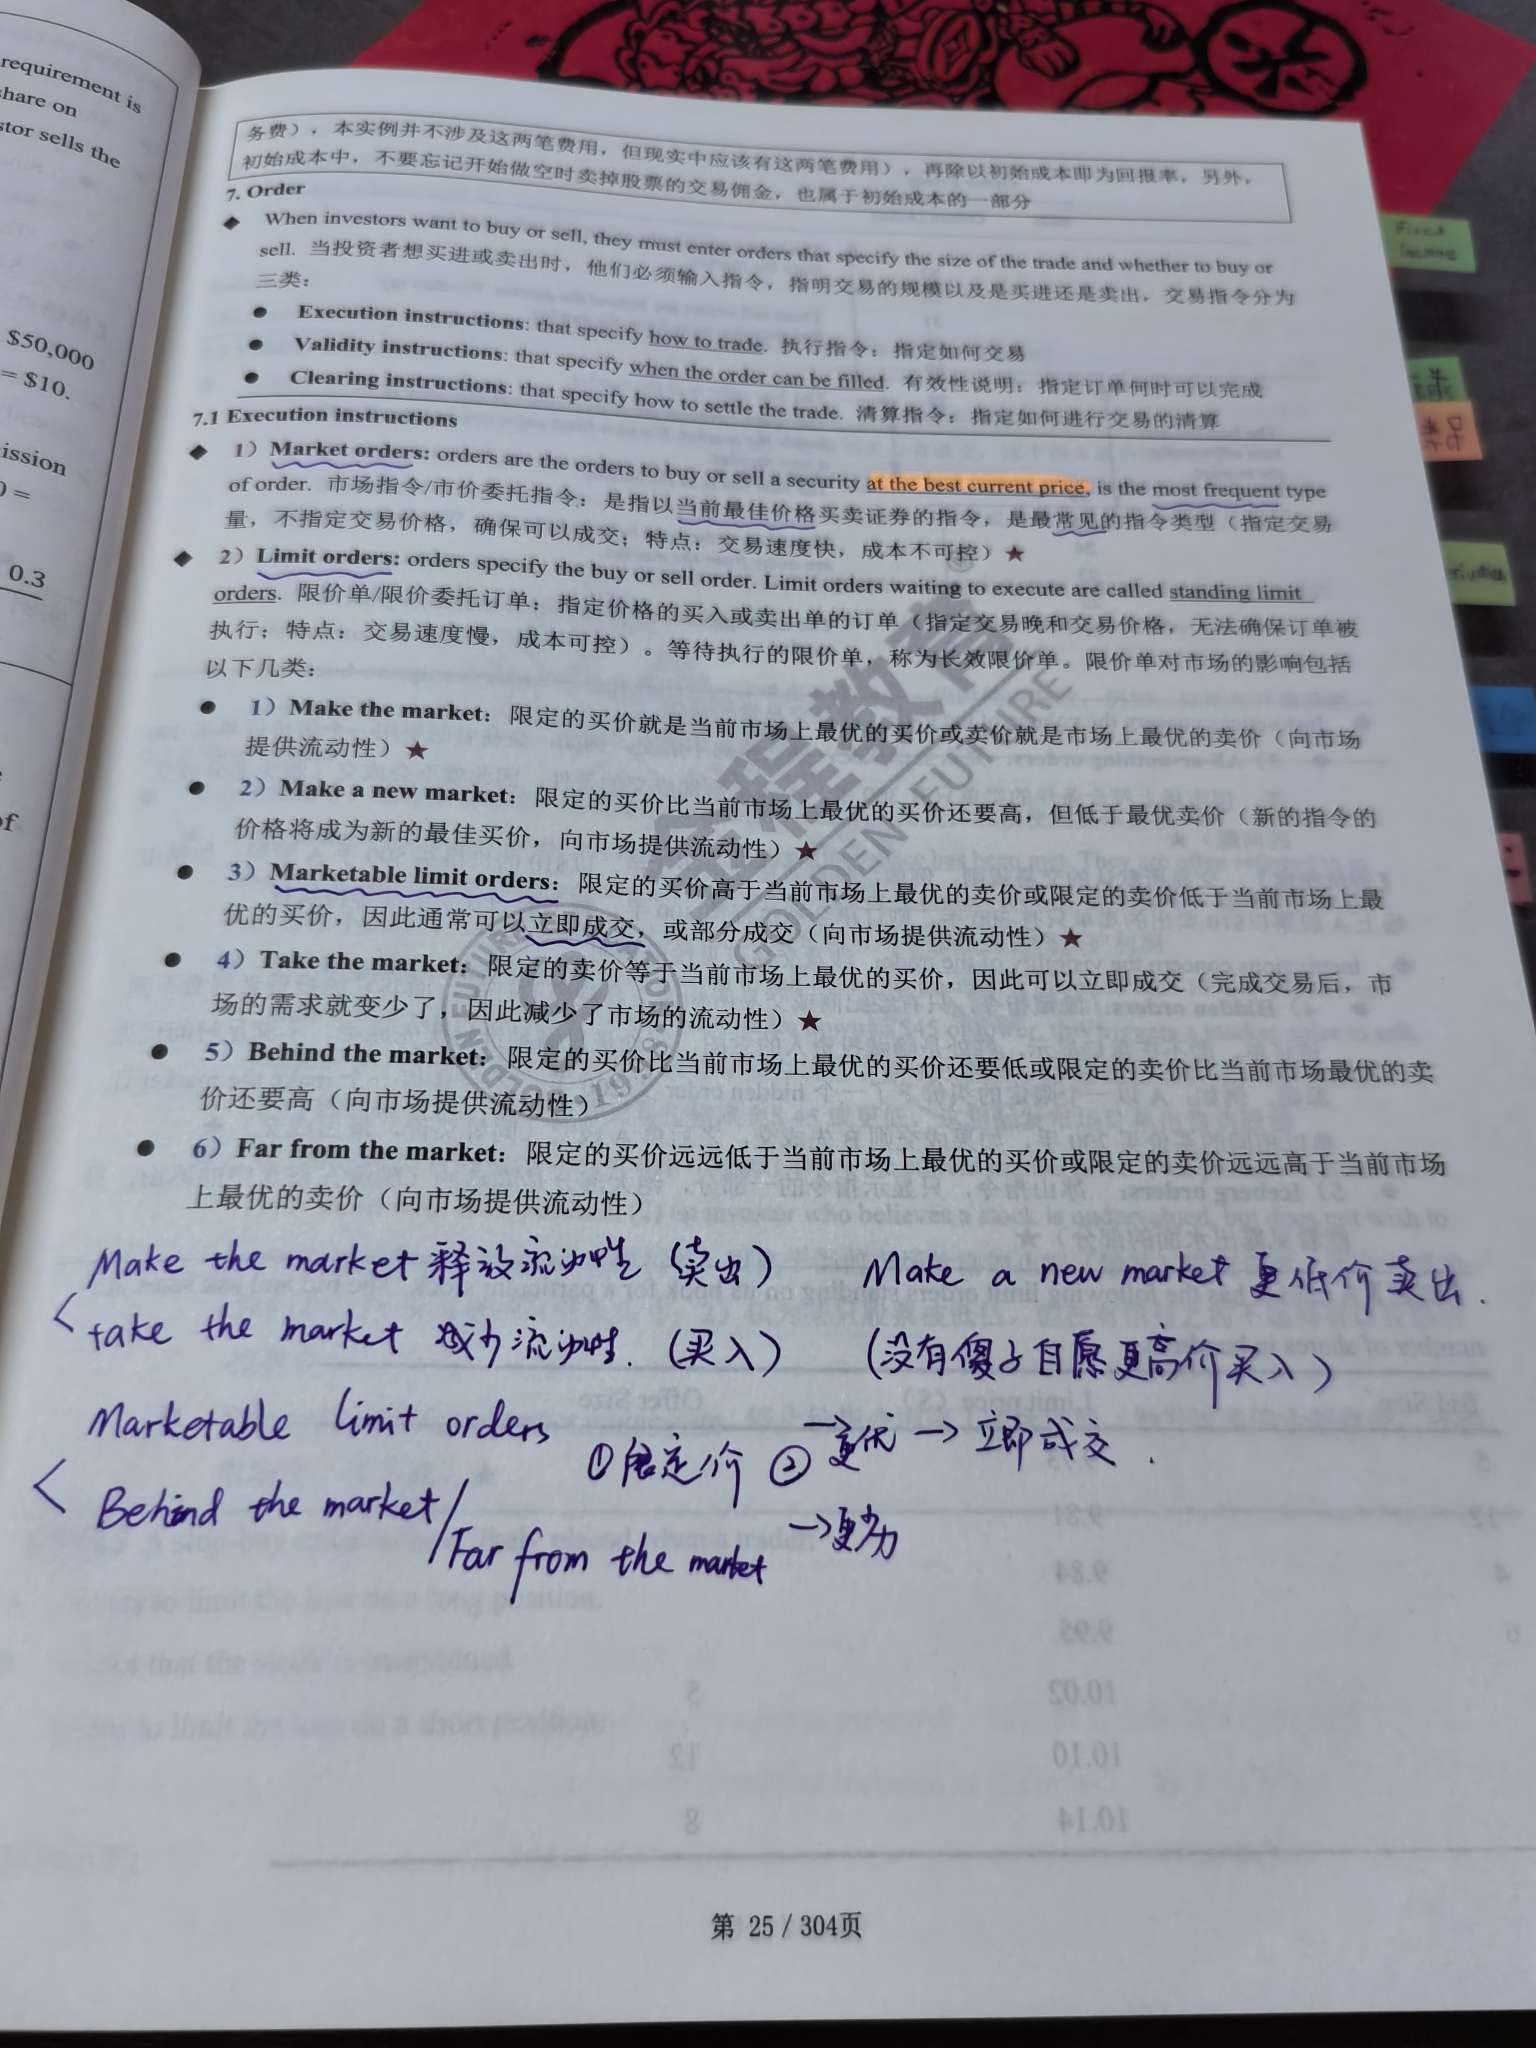 requirement is
share on
stor sells the
$50,000
= $10.
ission
0.3
务费），本实例并不涉及这两笔费用，但现实中应该有这两笔费用），再除以初始成本即为回报率，另外，
初始成本中，不要忘记开始做空时卖掉股票的交易佣金，也属于初始成本的一部分
7. Order
When investors want to buy or sell, they must enter orders that specify the size of the trade and whether to buy or
sell. 当投资者想买进或卖出时，他们必须输入指令，指明交易的规模以及是买进还是卖出，交易指令分为
三类：
Execution instructions: that specify how to trade. 执行指令：指定如何交易
Validity instructions: that specify when the order can be filled. 有效性说明：指定订单何时可以完成
Clearing instructions: that specify how to settle the trade. 清算指令：指定如何进行交易的清算
7.1 Execution instructions
1）Market orders: orders are the orders to buy or sell a security at the best current price, is the most frequent type
of order. 市场指令/市价委托指令：是指以当前最佳价格买卖证券的指令，是最常见的指令类型（指定交易
量，不指定交易价格，确保可以成交；特点：交易速度快，成本不可控）★
2）Limit orders: orders specify the buy or sell order. Limit orders waiting to execute are called standing limit
orders. 限价单/限价委托订单：指定价格的买入或卖出单的订单（指定交易晚和交易价格，无法确保订单被
执行；特点：交易速度慢，成本可控）。等待执行的限价单，称为长效限价单。限价单对市场的影响包括
以下几类：
1）Make the market：限定的买价就是当前市场上最优的买价或卖价就是市场上最优的卖价（向市场
提供流动性）★
2）Make a new market：限定的买价比当前市场上最优的买价还要高，但低于最优卖价（新的指令的
价格将成为新的最佳买价，向市场提供流动性）★
3）Marketable limit orders：限定的买价高于当前市场上最优的卖价或限定的卖价低于当前市场上最
优的买价，因此通常可以立即成交，或部分成交（向市场提供流动性）★
4）Take the market：限定的卖价等于当前市场上最优的买价，因此可以立即成交（完成交易后，市
场的需求就变少了，因此减少了市场的流动性）★
5）Behind the market：限定的买价比当前市场上最优的买价还要低或限定的卖价比当前市场最优的卖
价还要高（向市场提供流动性）
6）Far from the market：限定的买价远远低于当前市场上最优的买价或限定的卖价远远高于当前市场
上最优的卖价（向市场提供流动性）
金程教育
GOLDEN FUTURE
Make the market 释放流动性（卖出） Make a new market 更低价卖出.
take the market 减少流动性.（买入） （没有傻子自愿更高价买入）
Marketable limit orders ①限定价 ② →更优 → 立即成交.
Behind the market/Far from the market →更劣
第 25 / 304页
Fixed
Income